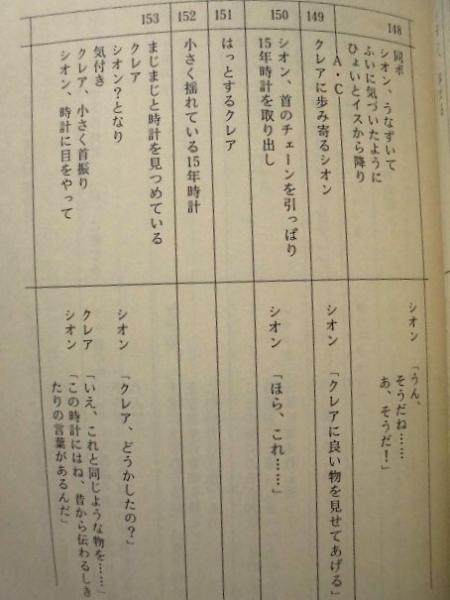 148
同ポ
シオン、うなずいて
ふいに気づいたように
ひょいとイスから降り
A・C
シオン
「うん、
そうだね……
あ、そうだ！」
149
クレアに歩み寄るシオン
シオン
「クレアに良い物を見せてあげる」
150
シオン、首のチェーンを引っぱり
15年時計を取り出し
シオン
「ほら、これ……」
151
はっとするクレア
152
小さく揺れている15年時計
153
まじまじと時計を見つめている
クレア
シオン？となり
気付き
クレア、小さく首振り
シオン、時計に目をやって
シオン
「クレア、どうかしたの？」
クレア
「いえ、これと同じような物を……」
シオン
「この時計にはね、昔から伝わるしき
たりの言葉があるんだ」